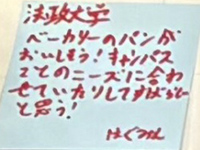 法政大学
ベーカリーのパンが
おいしそう!キャンパス
ごとのニーズに合わ
せていたりしてすばらしい
と思う!